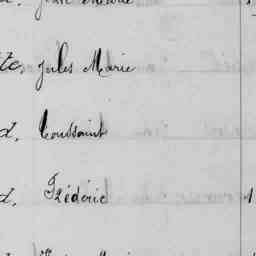 te, Jules Marie
d. Toussaint
d. Frédéric